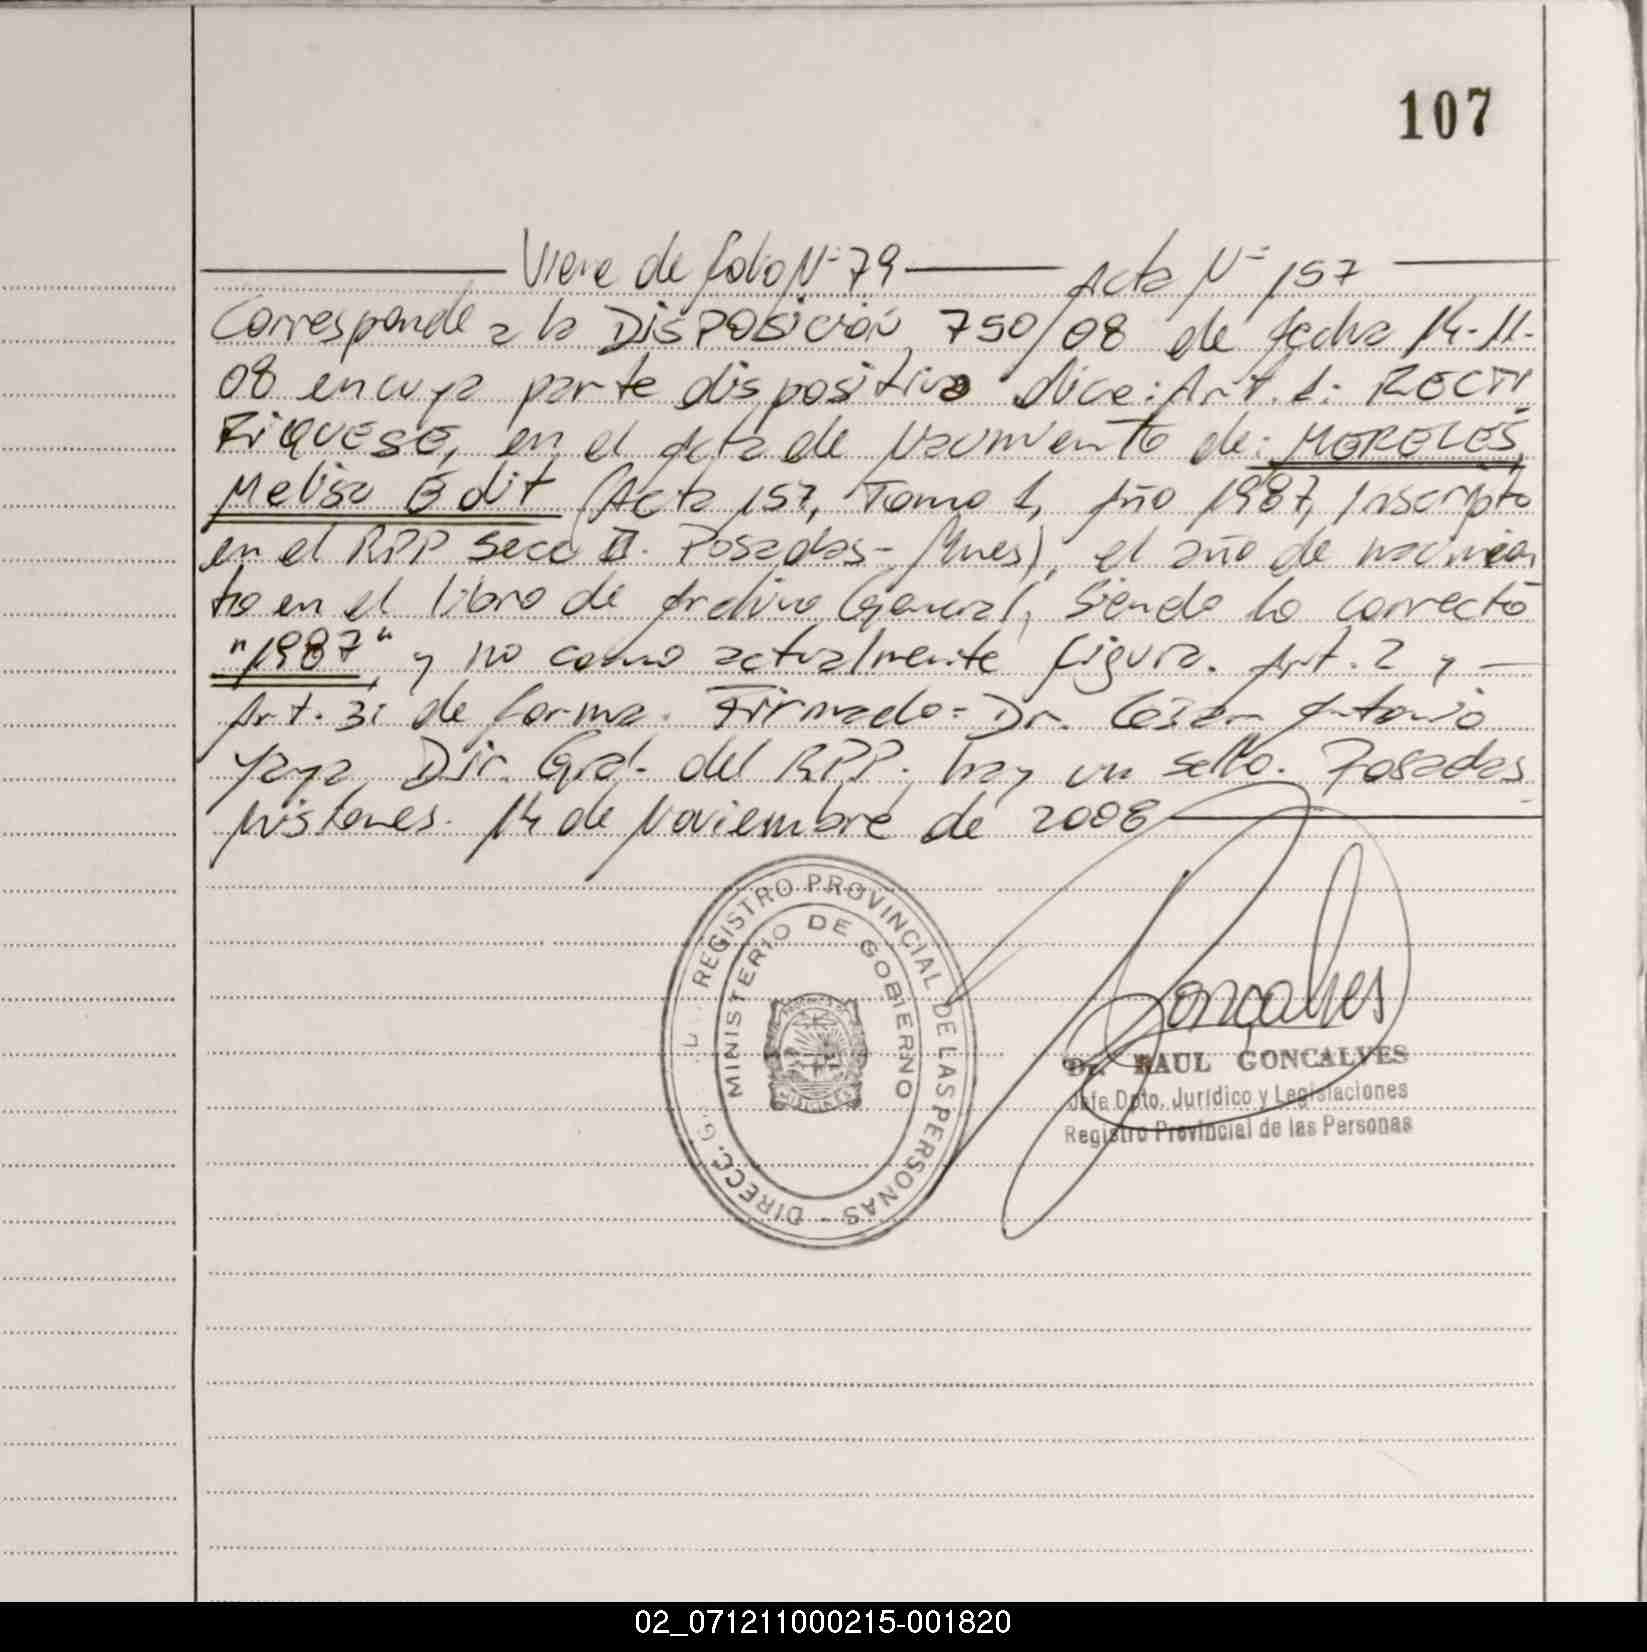 107
Viene de folio Nº 79 Acta Nº 157
Corresponde a la DISPOSICIÓN 750/08 de fecha 14-11-
08 en cuya parte dispositiva dice: Art. 1: RECTI
FIQUESE, en el Acta de Nacimiento de: MORELES,
Melisa Edit (Acta 157, Tomo 1, Año 1987, Inscripto
en el RPP Secc II. Posadas - Mnes), el año de nacimien
to en el libro de Archivo General, siendo lo correcto
"1987", y no como actualmente figura. Art. 2 y
Art. 3: de forma. Firmado: Dr. César Antonio
Yaya Dir. Gral. del RPP. hay un sello. Posadas
Misiones. 14 de Noviembre de 2008
REGISTRO PROVINCIAL DE LAS PERSONAS - DIRECC. G
MINISTERIO DE GOBIERNO
MISIONES
Goncalves
Dr. RAUL GONCALVES
Jefe Dpto. Jurídico y Legislaciones
Registro Provincial de las Personas
02_071211000215-001820